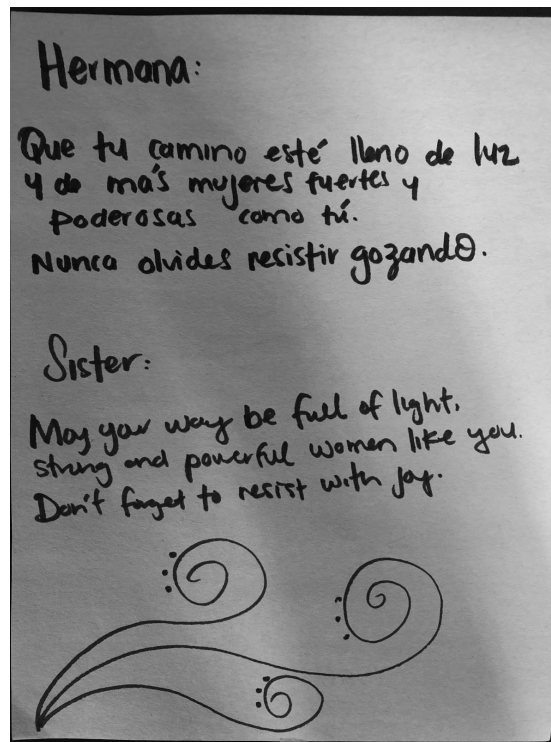 Hermana:
Que tu camino esté lleno de luz
y de más mujeres fuertes y
poderosas como tú.
Nunca olvides resistir gozando.
Sister:
May your way be full of light,
strong and powerful women like you.
Don't forget to resist with joy.